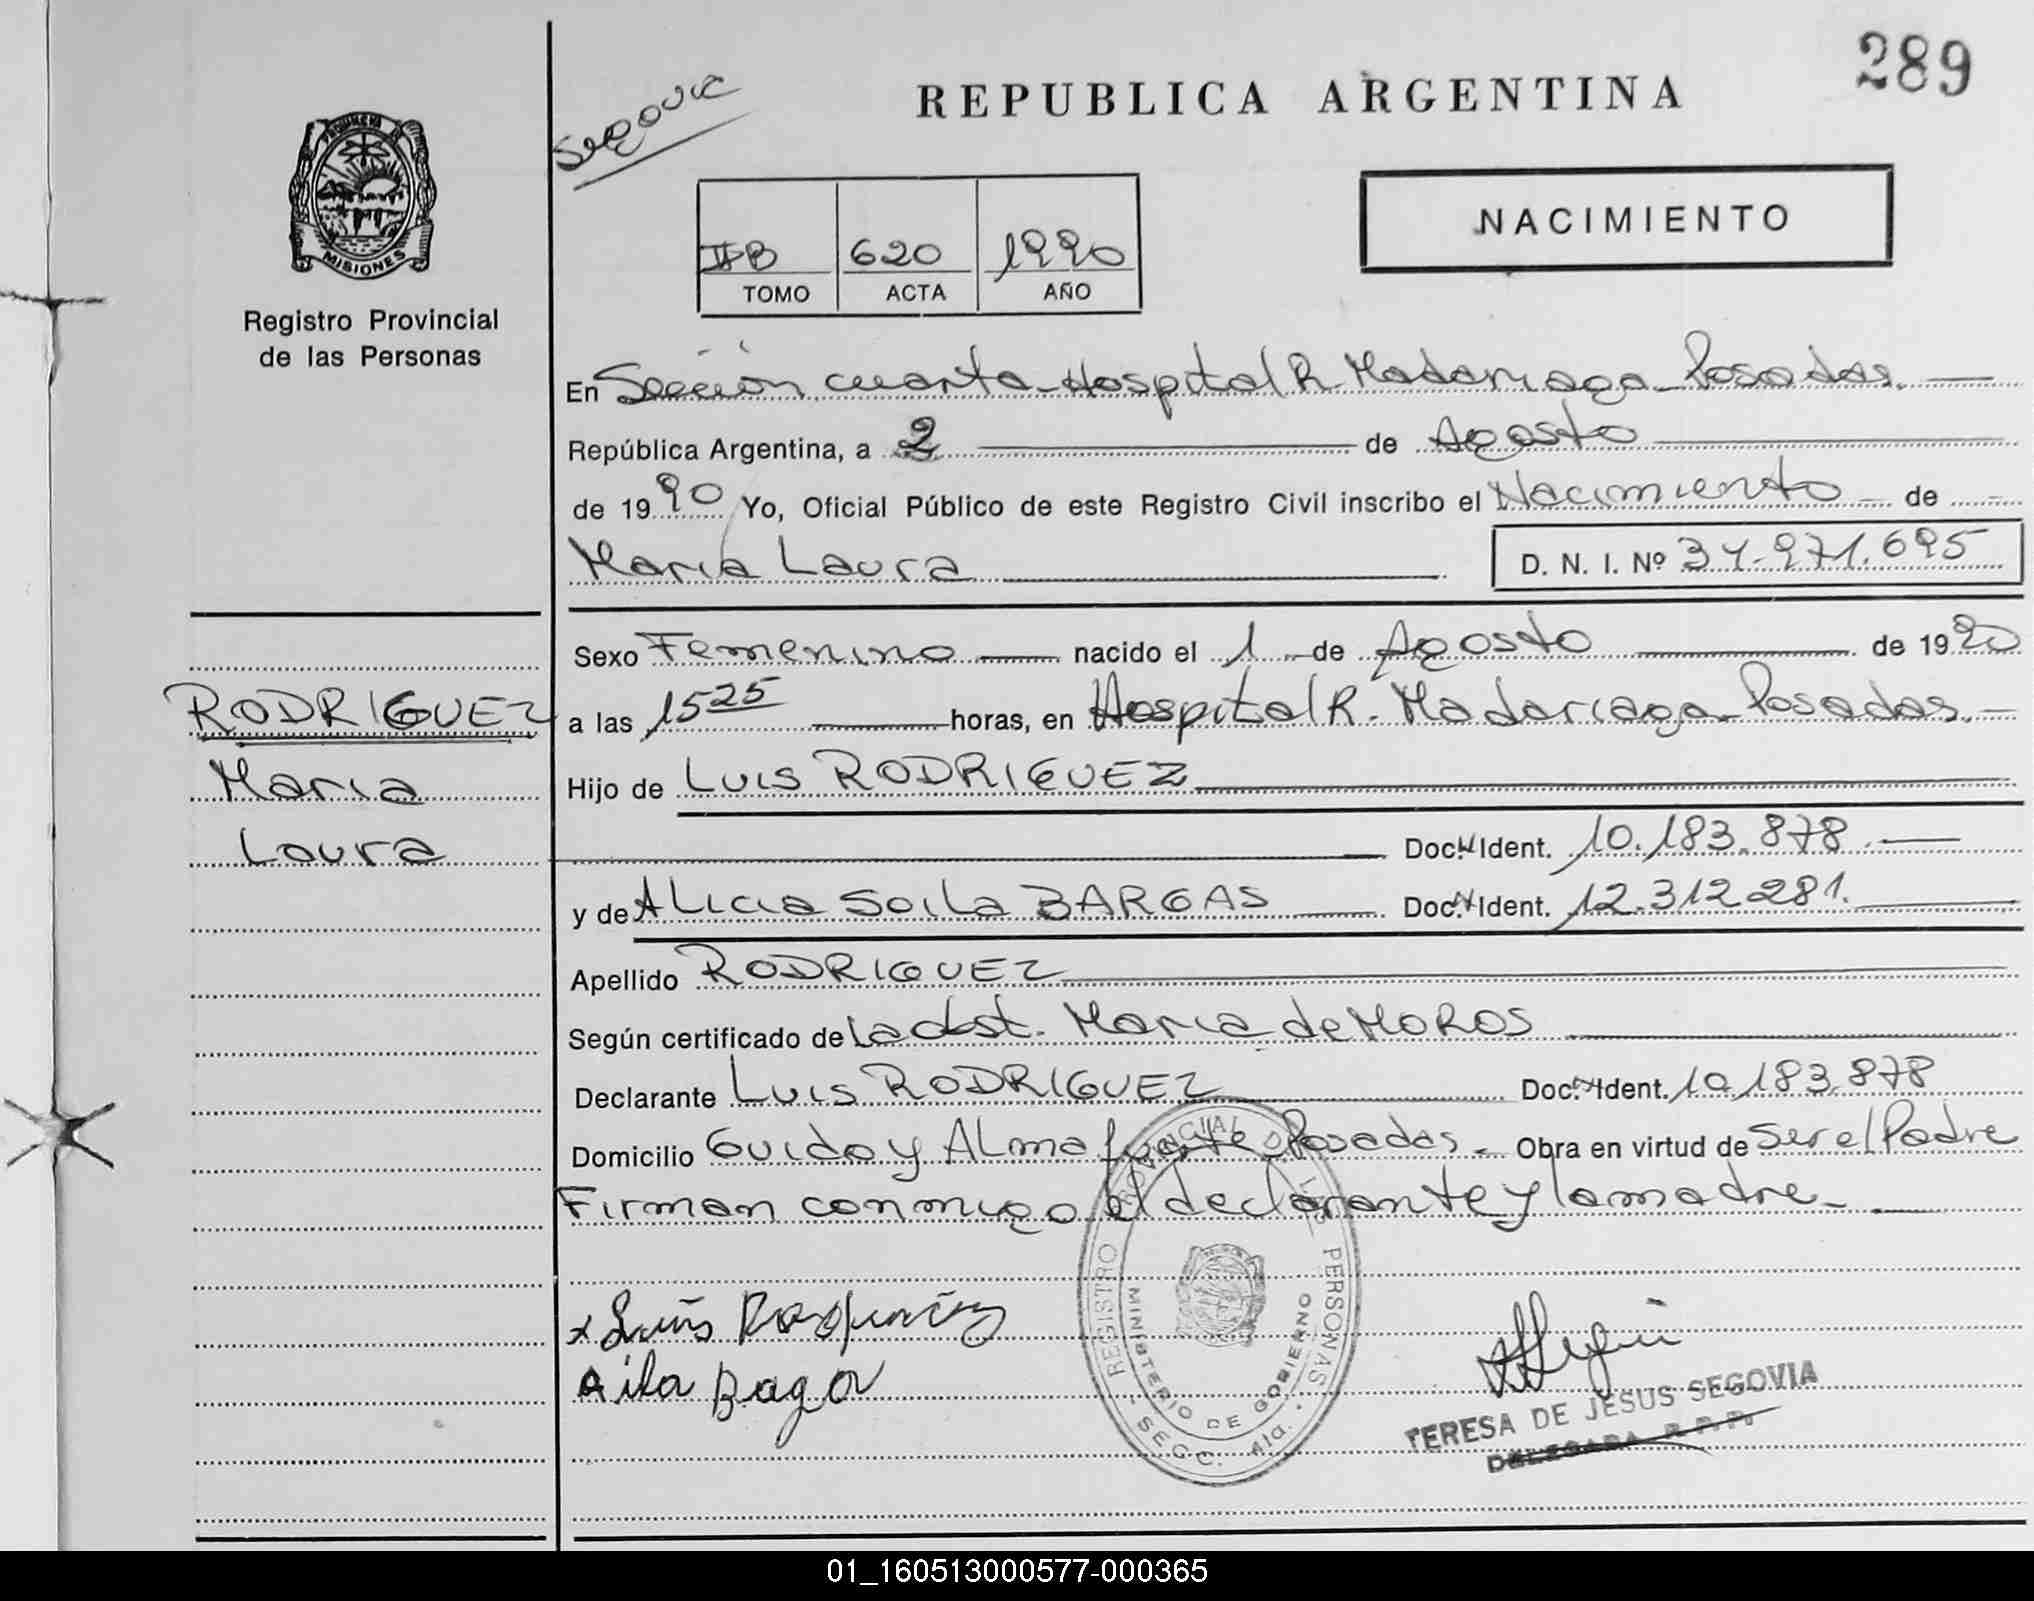 289
REPUBLICA ARGENTINA
Segovia
NACIMIENTO
PROVINCIA DE
MISIONES
Registro Provincial
de las Personas
IIB 620 1990
TOMO ACTA AÑO
En Sección cuarta - Hospital R. Madariaga - Posadas. —
República Argentina, a 2 — de Agosto —
de 1990 Yo, Oficial Público de este Registro Civil inscribo el Nacimiento — de —
María Laura — D. N. I. Nº 34.971.695
Sexo Femenino — nacido el 1 — de Agosto — de 1990
RODRIGUEZ
Maria
Laura
a las 15 25 — horas, en Hospital R. Madariaga - Posadas. —
Hijo de LUIS RODRIGUEZ —
— Doc. N Ident. 10.183.878. —
y de ALICIA SOILA BARGAS — Doc. N Ident. 12.312.281. —
Apellido RODRIGUEZ —
Según certificado de la obst. Maria de MOROS —
Declarante LUIS RODRIGUEZ — Doc. N Ident. 10.183.878
Domicilio Guido y Almafuerte Posadas - Obra en virtud de ser el Padre
Firman conmigo el declarante y la madre - —
x Luis Rodriguez
REGISTRO PROVINCIAL DE LAS PERSONAS
MINISTERIO DE GOBIERNO
- SECC. 4ta. -
TERESA DE JESUS SEGOVIA
DELEGADA R.P.P.
01_160513000577-000365